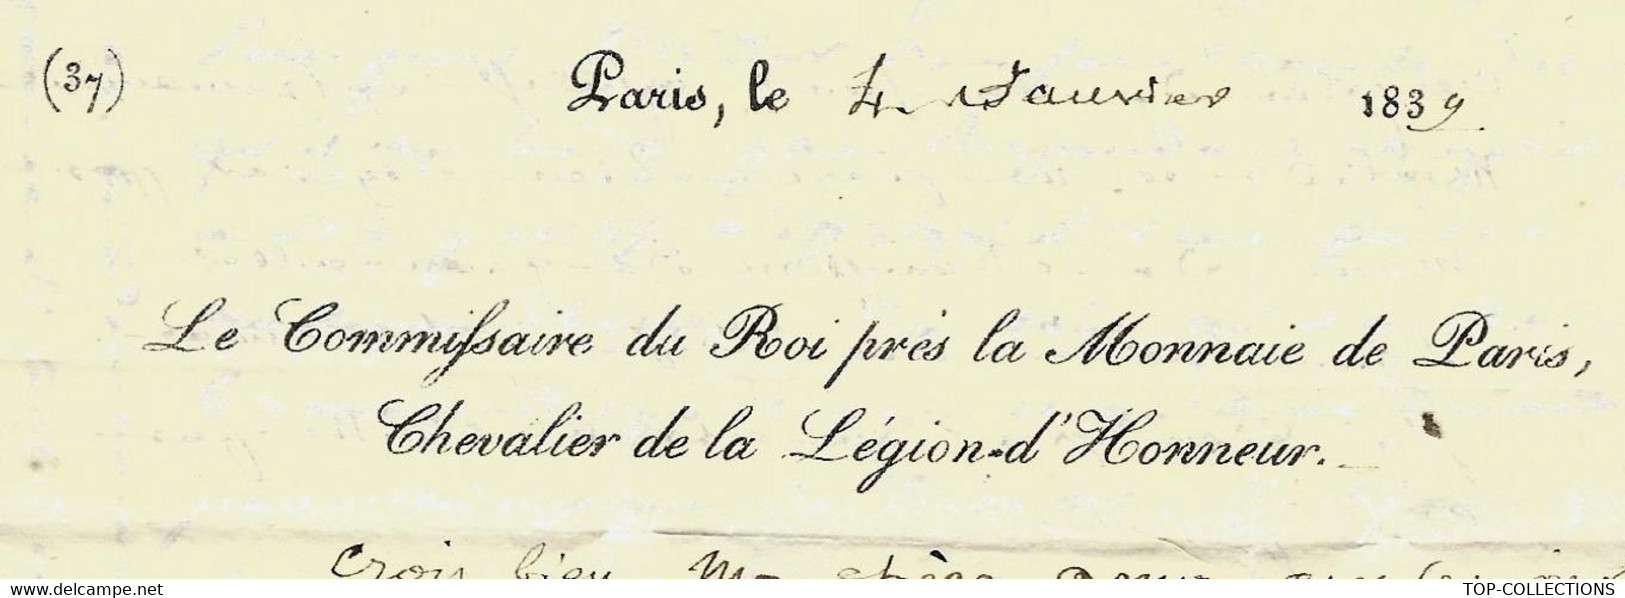 (37)
Paris, le 4 Janvier 1839
Le Commiſsaire du Roi près la Monnaie de Paris,
Chevalier de la Légion-d'Honneur.
crois bien
delcampe.net
TOP-COLLECTIONS